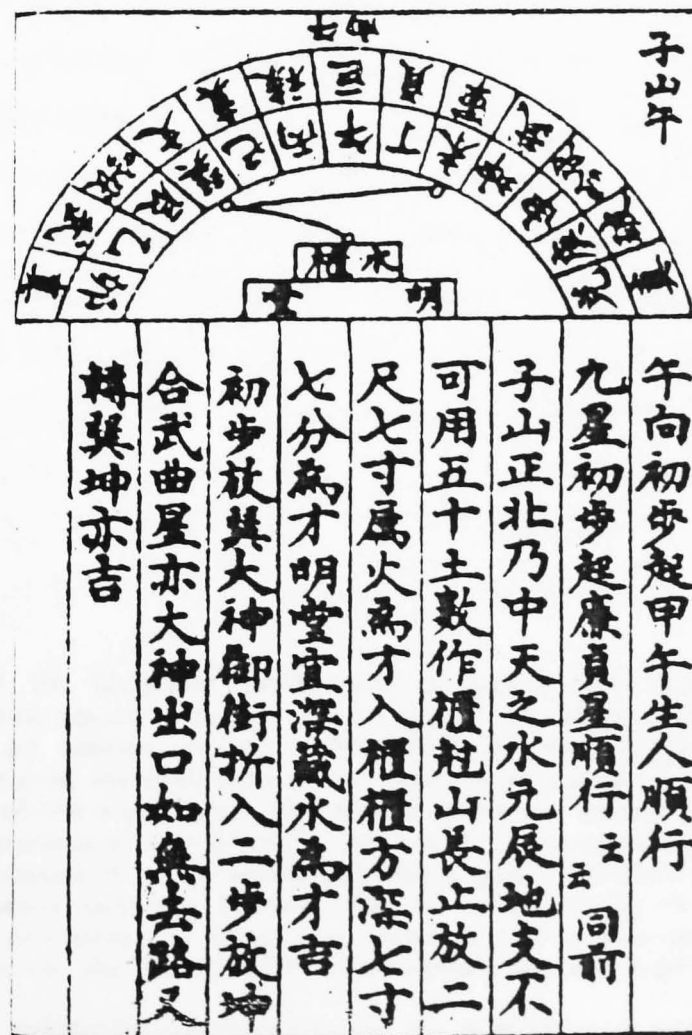 子山午
巨 貞
乙 辰 巽 巳 丙 午 丁 未 坤
水櫃
明堂
午向初步起甲午生人順行
九星初步起廉貞星順行云云同前
子山正北乃中天之水元展地支不
可用五十土數作櫃尅山長止放二
尺七寸屬火為才入櫃櫃方深七寸
七分為才明堂宜深藏水為才吉
初步放巽大神御街折入二步放坤
合武曲星亦大神出口如無去路又
轉巽坤亦吉